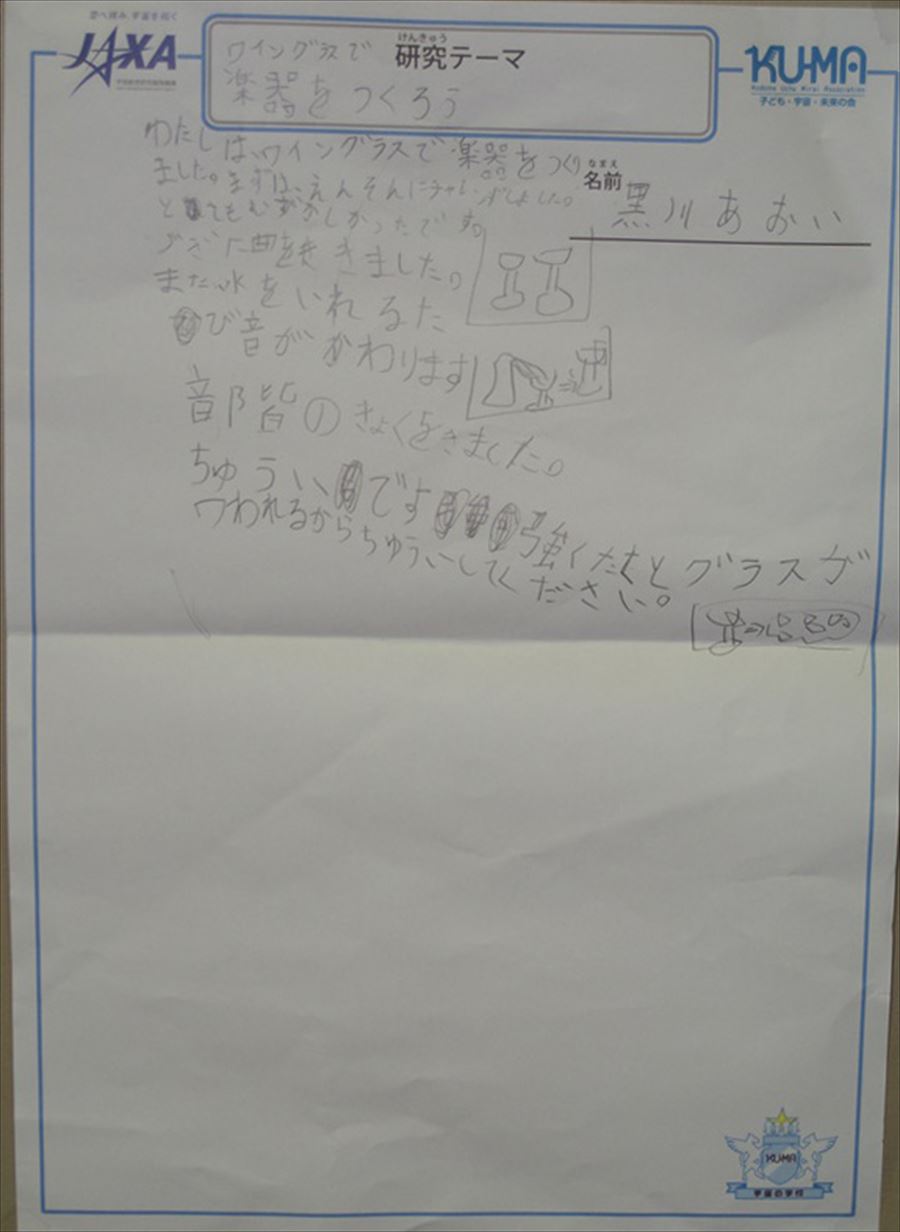 JAXA
研究テーマ
けんきゅう
ワイングラスで
楽器をつくろう
KU-MA
Kodomo Uchu Mirai Association
子ども・宇宙・未来の会
名前
なまえ
黒川あおい
わたしは、ワイングラスで楽器をつくり
ました。まずは、えんそんにチャレンジしました。
とてもむずかしかったです。
つぎに曲をききました。
また、水をいれるた
び音がかわります
音階のきょくをききました。
ちゅういです強くたたくとグラスが
われるからちゅういしてください。
KU-MA
宇宙の学校